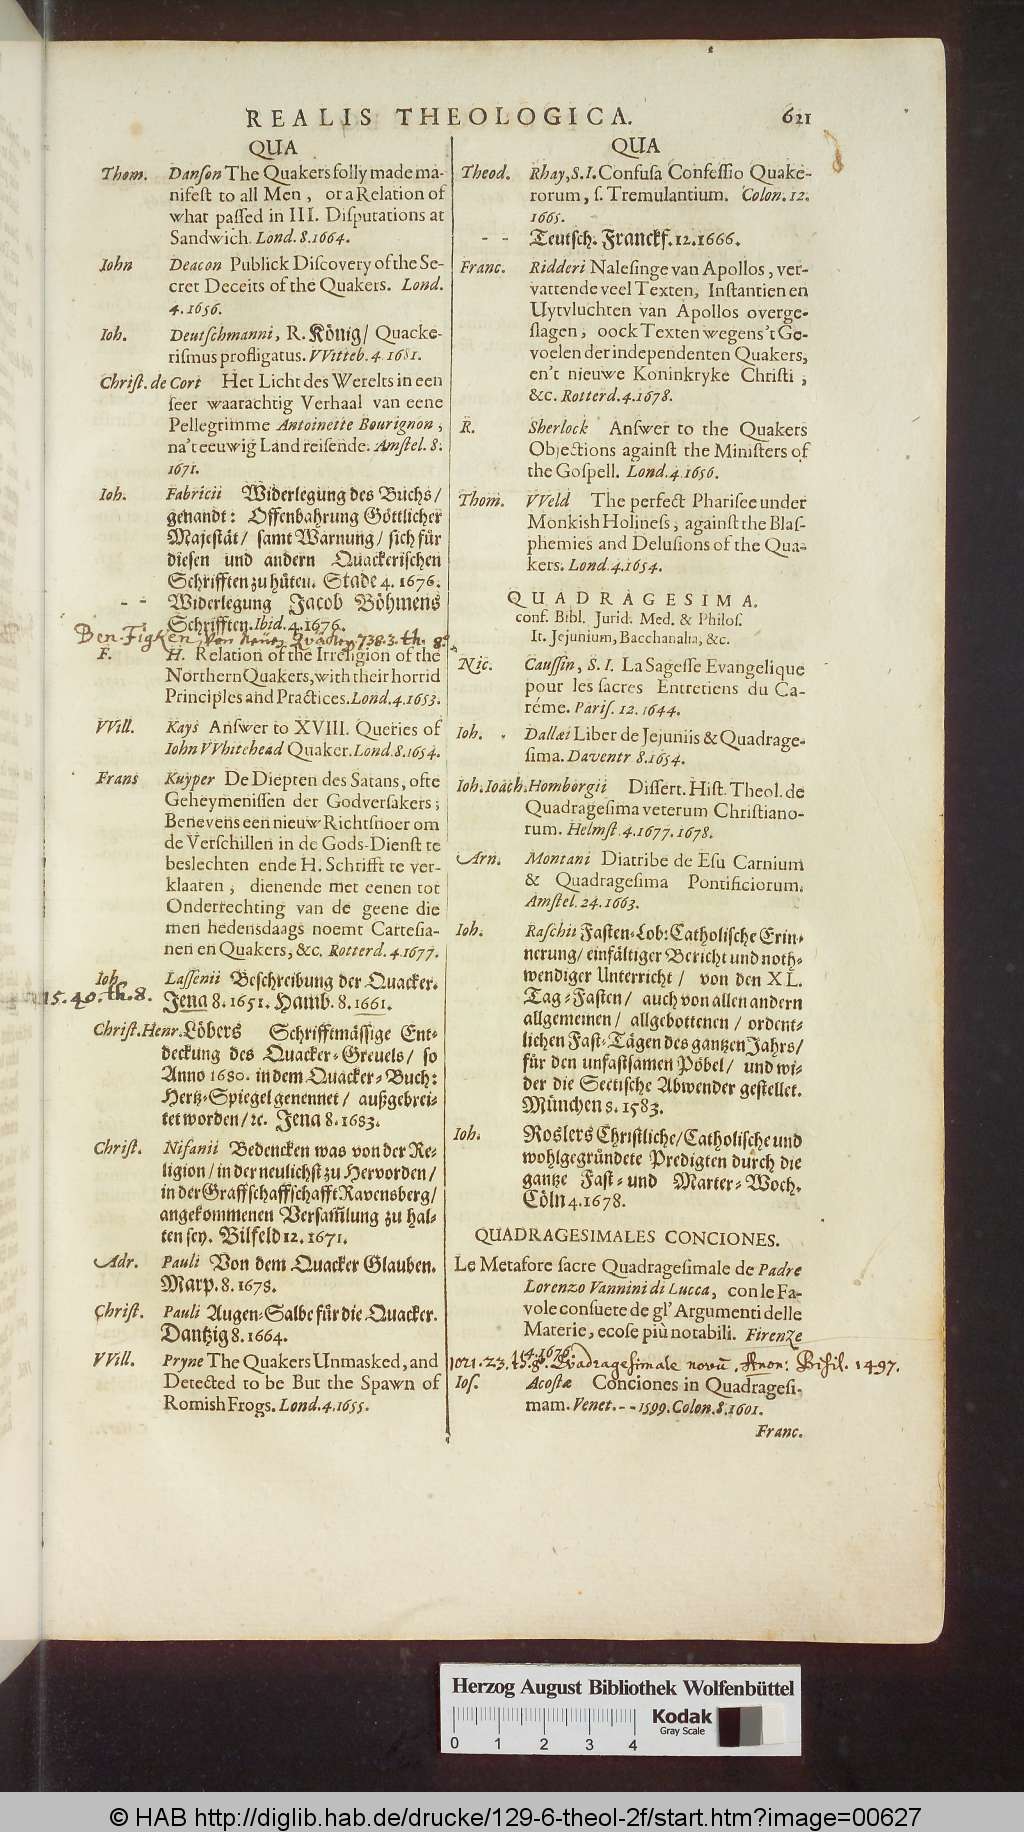 REALIS THEOLOGICA. 621
QUA
Thom. Danson The Quakers folly made ma-
nifest to all Men, or a Relation of
what passed in III. Disputations at
Sandwich. Lond. 8. 1664.
Iohn Deacon Publick Discovery of the Se-
cret Deceits of the Quakers. Lond.
4. 1656.
Ioh. Deutschmanni, R. König/ Quacke-
rismus profligatus. VVitteb. 4. 1681.
Christ. de Cort Het Licht des Werelts in een
seer waarachtig Verhaal van eene
Pellegrimme Antoinette Bourignon,
na't eeuwig Land reisende. Amstel. 8.
1671.
Ioh. Fabricii Widerlegung des Buchs/
genandt: Offenbahrung Göttlicher
Majestät/ samt Warnung/ sich für
diesen und andern Quackerischen
Schrifften zu hüten. Stade 4. 1676.
- - Widerlegung Jacob Böhmens
Schrifften. Ibid. 4. 1676.
Ben. Figken, Von Neuen Quäckern 738.3. th. 8º.
F. H. Relation of the Irreligion of the
Northern Quakers, with their horrid
Principles and Practices. Lond. 4. 1653.
VVill. Kays Answer to XVIII. Queries of
Iohn VVhitehead Quaker. Lond. 8. 1654.
Frans Kuyper De Diepten des Satans, ofte
Geheymenissen der Godversakers;
Benevens een nieuw Richtsnoer om
de Verschillen in de Gods-Dienst te
beslechten ende H. Schrifft te ver-
klaaren, dienende met eenen tot
Onderrechting van de geene die
men hedensdaags noemt Cartesia-
nen en Quakers, &c. Rotterd. 4. 1677.
Ioh. Lassenii Beschreibung der Quacker.
15. 40. th. 8. Jena 8. 1651. Hamb. 8. 1661.
Christ. Henr. Löbers Schrifftmässige Ent-
deckung des Quacker-Greuels/ so
Anno 1680. in dem Quacker-Buch:
Hertz-Spiegel genennet/ außgebrei-
tet worden/ ꝛc. Jena 8. 1683.
Christ. Nifanii Bedencken was von der Re-
ligion/ in der neulichst zu Hervorden/
in der Graffschaffschafft Ravensberg/
angekommenen Versam̃lung zu hal-
ten sey. Bilfeld 12. 1671.
Adr. Pauli Von dem Quacker Glauben.
Marp. 8. 1678.
Christ. Pauli Augen-Salbe für die Quacker.
Dantzig 8. 1664.
VVill. Pryne The Quakers Unmasked, and
Detected to be But the Spawn of
Romish Frogs. Lond. 4. 1655.
QUA
Theod. Rhay, S. I. Confusa Confessio Quake-
rorum, s. Tremulantium. Colon. 12.
1665.
- - Teutsch. Franckf. 12. 1666.
Franc. Ridderi Nalesinge van Apollos, ver-
vattende veel Texten, Instantien en
Uytvluchten van Apollos overge-
slagen, oock Texten wegens't Ge-
voelen der independenten Quakers,
en't nieuwe Koninkryke Christi,
&c. Rotterd. 4. 1678.
R. Sherlock Answer to the Quakers
Objections against the Ministers of
the Gospell. Lond. 4. 1656.
Thom. VVeld The perfect Pharisee under
Monkish Holiness, against the Blas-
phemies and Delusions of the Qua-
kers. Lond. 4. 1654.
QUADRAGESIMA.
conf. Bibl. Jurid. Med. & Philos.
It. Jejunium, Bacchanalia, &c.
Nic. Caussin, S. I. La Sagesse Evangelique
pour les sacres Entretiens du Ca-
réme. Paris. 12. 1644.
Ioh. Dallæi Liber de Jejuniis & Quadrage-
sima. Daventr 8. 1654.
Ioh. Ioach. Hombergii Dissert. Hist. Theol. de
Quadragesima veterum Christiano-
rum. Helmst. 4. 1677. 1678.
Arn. Montani Diatribe de Esu Carnium
& Quadragesima Pontificiorum.
Amstel. 24. 1663.
Ioh. Raschii Fasten-Lob: Catholische Erin-
nerung/ einfältiger Bericht und noth-
wendiger Unterricht/ von den XL.
Tag-Fasten/ auch von allen andern
allgemeinen/ allgebottenen/ ordent-
lichen Fast-Tägen des gantzen Jahrs/
für den unfastsamen Pöbel/ und wi-
der die Sectische Abwender gestellet.
München 8. 1583.
Ioh. Roslers Christliche/ Catholische und
wohlgegründete Predigten durch die
gantze Fast- und Marter-Woch.
Cöln 4. 1678.
QUADRAGESIMALES CONCIONES.
Le Metafore sacre Quadragesimale de Padre
Lorenzo Vannini di Lucca, con le Fa-
vole consuete de gl' Argumenti delle
Materie, e cose più notabili. Firenze
4. 1676.
1021. 23. th. 8º. Quadragesimale novũ. Anon: Basil. 1497.
Ios. Acostæ Conciones in Quadragesi-
mam. Venet. - - 1599. Colon. 8. 1601.
Franc.
Herzog August Bibliothek Wolfenbüttel
0 1 2 3 4
Kodak
Gray Scale
© HAB http://diglib.hab.de/drucke/129-6-theol-2f/start.htm?image=00627